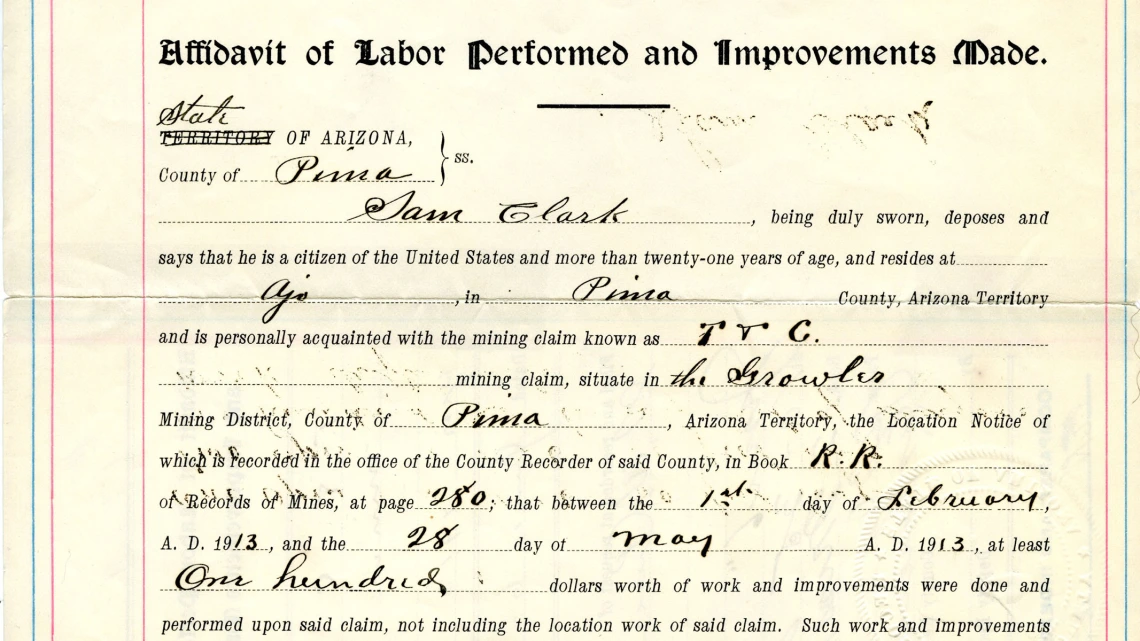 Affidavit of Labor Performed and Improvements Made.
State
TERRITORY OF ARIZONA,
County of Pima ss.
Sam Clark, being duly sworn, deposes and
says that he is a citizen of the United States and more than twenty-one years of age, and resides at
Ajo, in Pima County, Arizona Territory
and is personally acquainted with the mining claim known as T & C.
mining claim, situate in the Growler
Mining District, County of Pima, Arizona Territory, the Location Notice of
which is recorded in the office of the County Recorder of said County, in Book R.R.
of Records of Mines, at page 280; that between the 1st day of February,
A. D. 1913, and the 28 day of May A. D. 1913, at least
One hundred dollars worth of work and improvements were done and
performed upon said claim, not including the location work of said claim. Such work and improvements